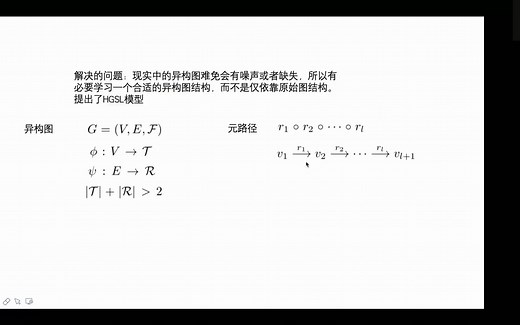 解决的问题：现实中的异构图难免会有噪声或者缺失，所以有
必要学习一个合适的异构图结构，而不是仅依靠原始图结构。
提出了HGSL模型
异构图 G = (V, E, ℱ)
ϕ : V → 𝒯
ψ : E → ℛ
|𝒯| + |ℛ| > 2
元路径 r₁ ∘ r₂ ∘ ⋯ ∘ rₗ
v₁ —r₁→ v₂ —r₂→ ⋯ —rₗ→ vₗ₊₁